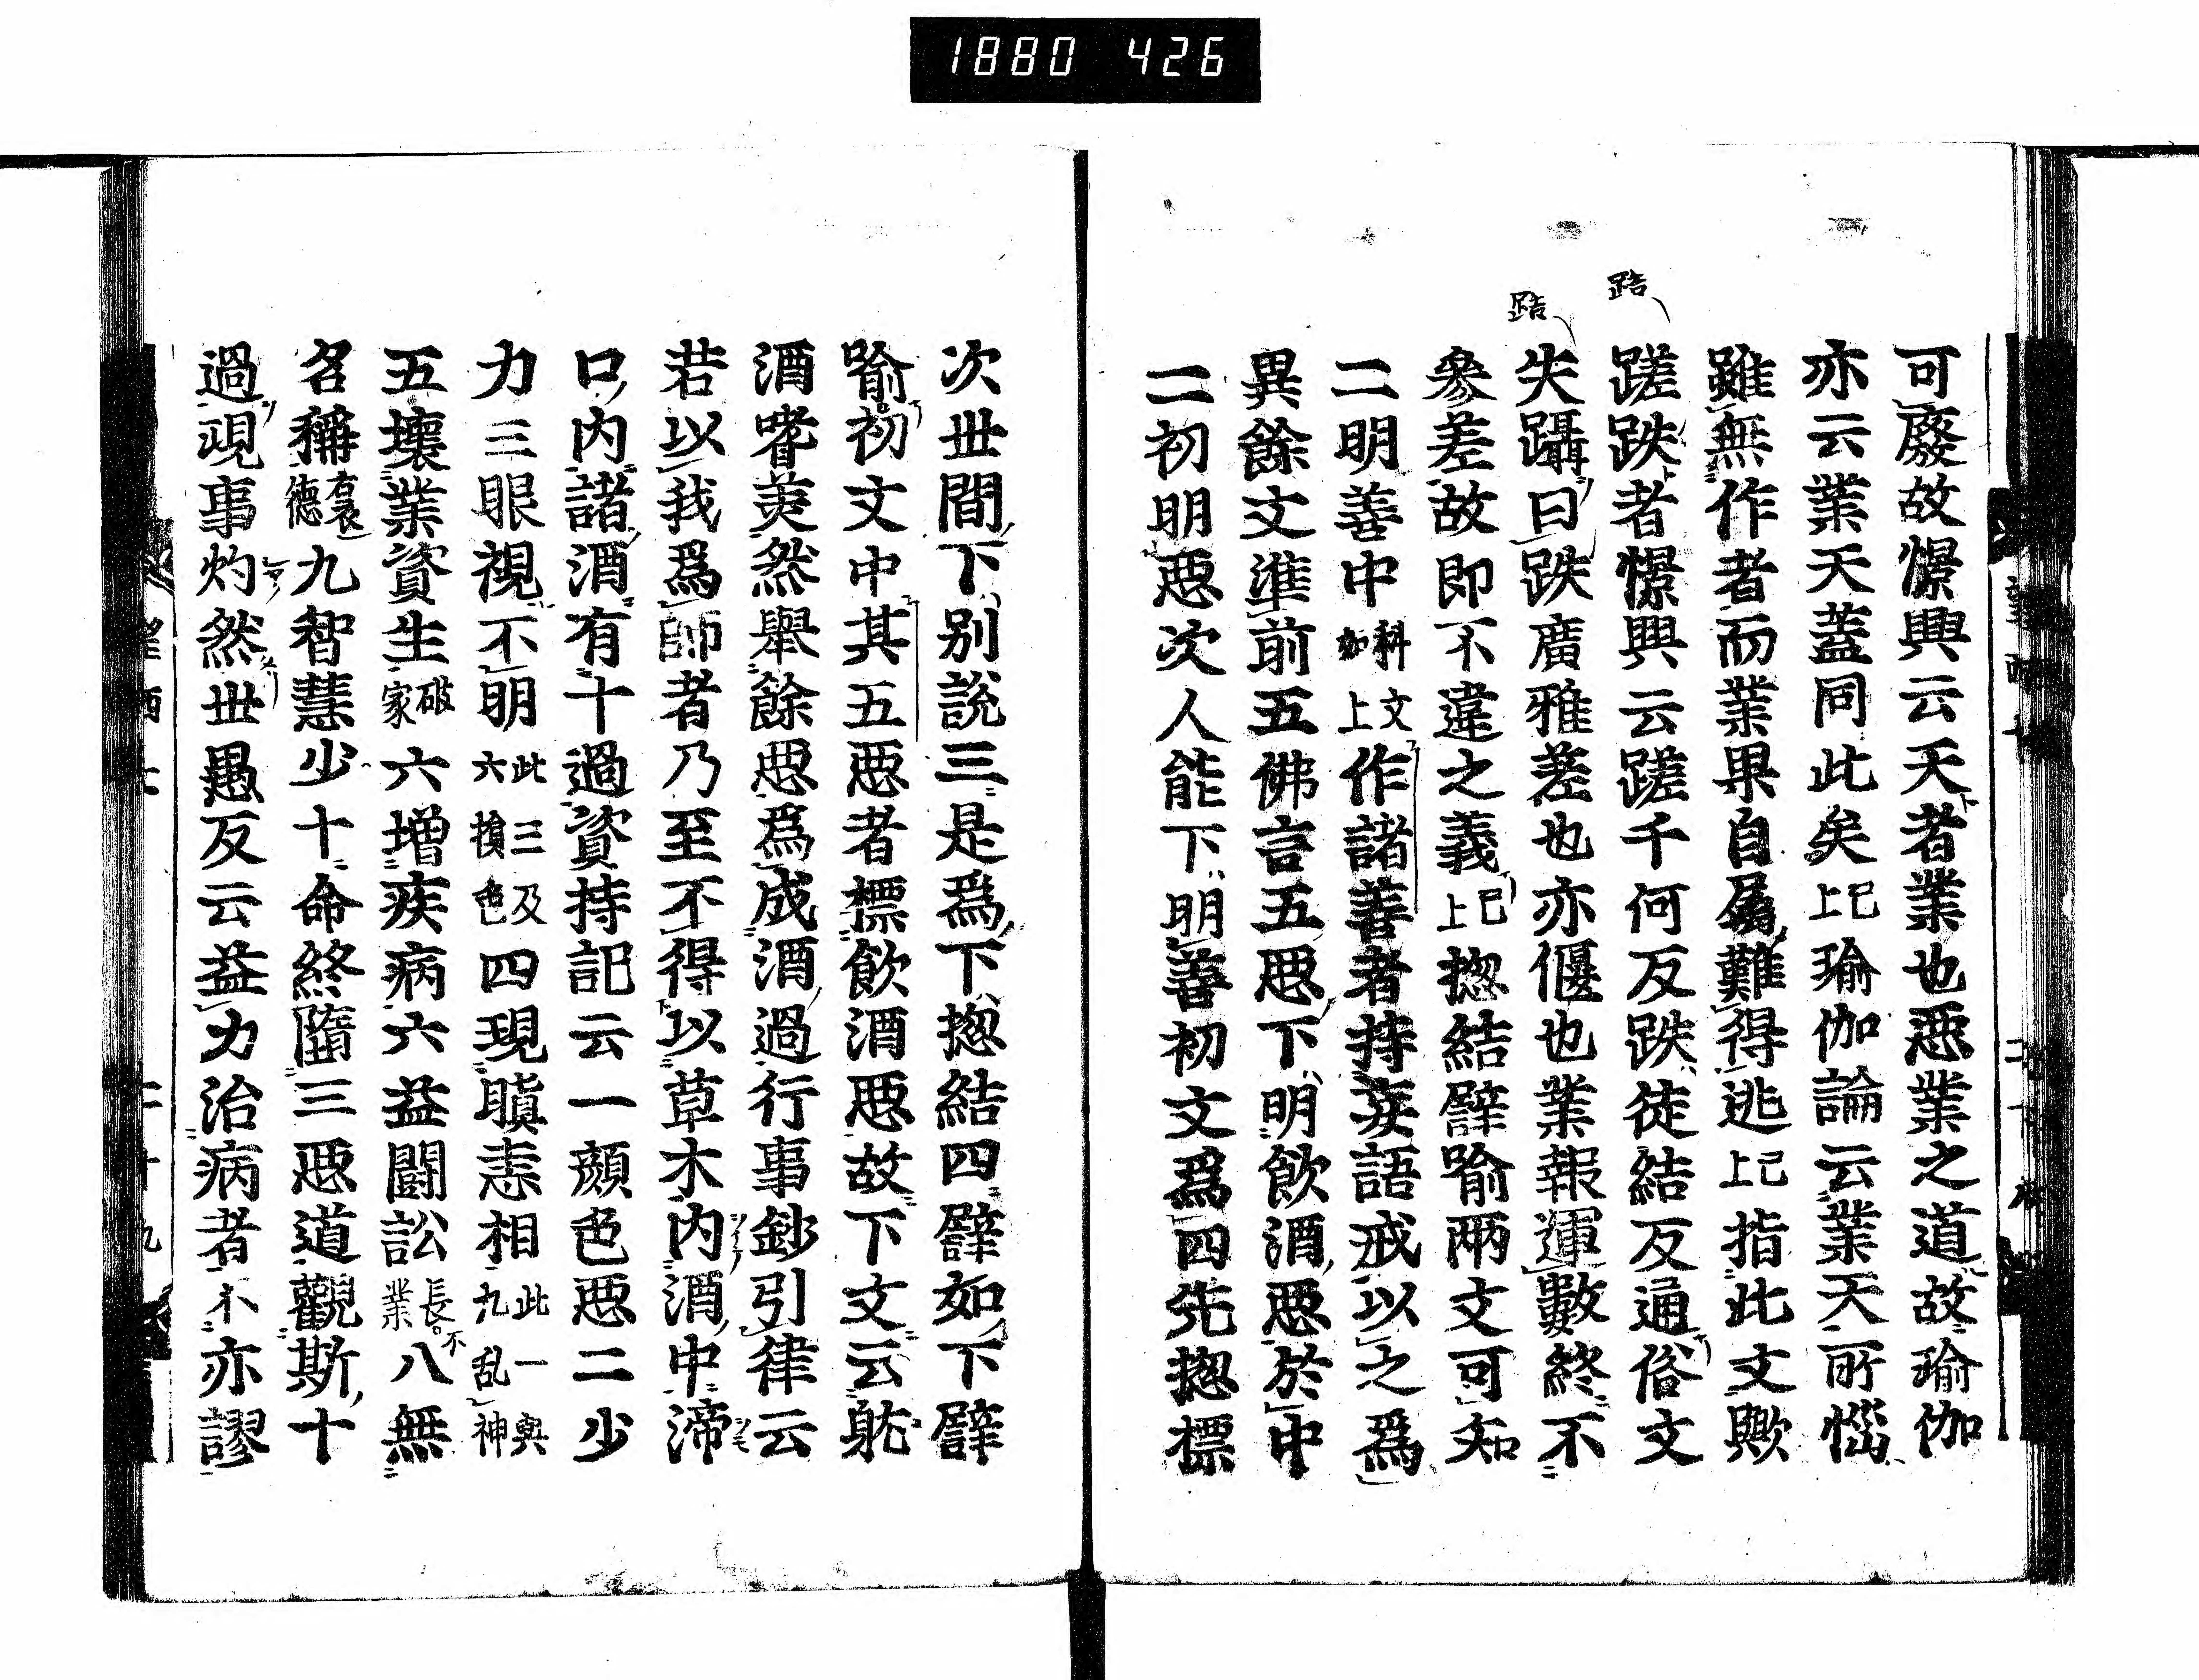 1880 426
䠏
䠏
可廢故憬興云天者業也惡業之道故瑜伽
亦云業天蓋同此矣已上瑜伽論云業天所惱
雖無作者而業果自屬難得逃已上指此文歟
蹉跌者憬興云蹉千何反跌徒結反通俗文
失躡曰跌廣雅差也亦偃也業報運數終不
參差故即不違之義已上揔結譬喻兩文可知
二明善中科文如上作諸善者持妄語戒以之爲
異餘文準前五佛言五惡下明飲酒惡於中
二初明惡次人能下明善初文爲四先揔標
次世間下別說三是爲下揔結四譬如下譬
喻初文中其五惡者標飲酒惡故下文云躭
酒嗜美然舉餘惡爲成酒過行事鈔引律云
若以我爲師者乃至不得以草木內酒中渧
口內諸酒有十過資持記云一顏色惡二少
力三眼視不明此三及六損色四現瞋恚相此一與九乱神
五壞業資生破家六增疾病六益鬪訟長不業八無
名稱喪德九智慧少十命終墮三惡道觀斯十
過現事灼然世愚反云益力治病者不亦謬